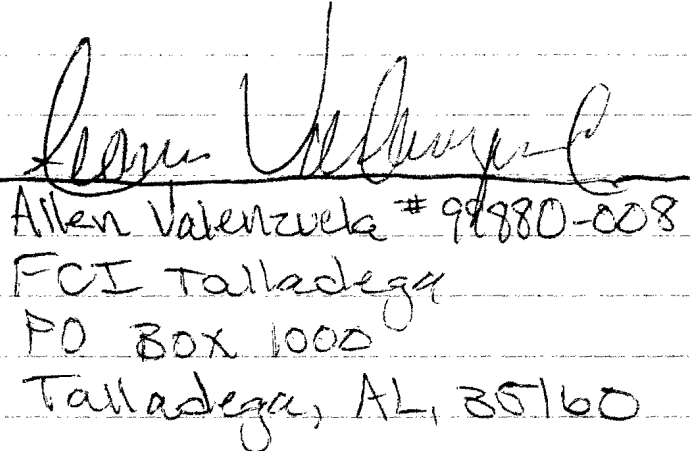 Allen Valenzuela # 99880-008
FCI Talladega
PO Box 1000
Talladega, AL, 35160